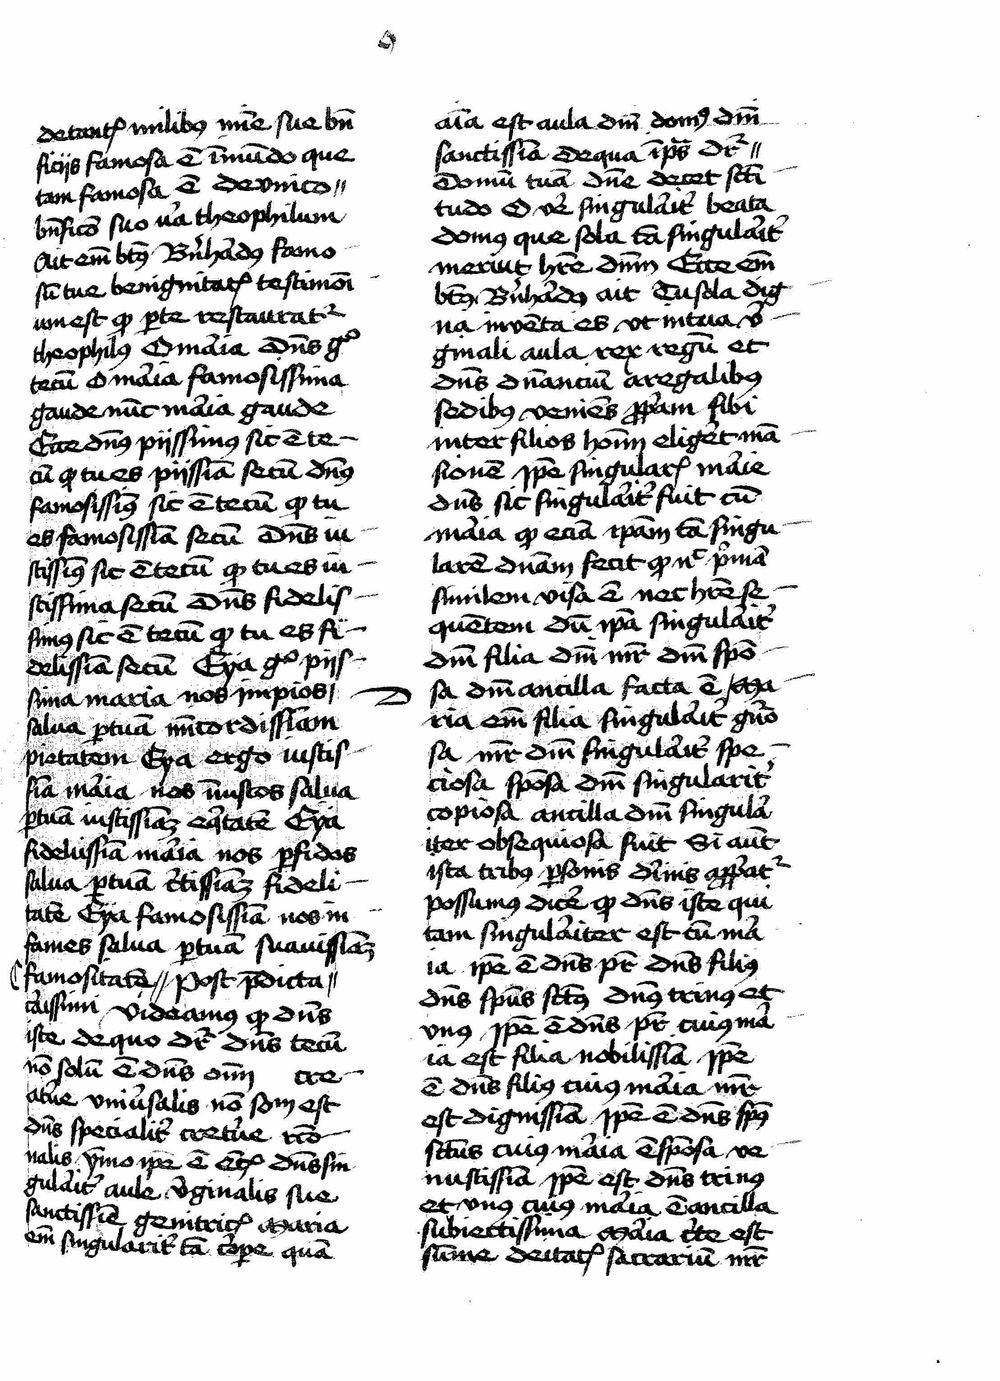 detant milibus mīe sue bn̄
ficijs famosa ē ī mūdo que
tam famosa ē de vnico //
bn̄fico suo vīa theophilum
Ait em̄ btūs Bn̄hādus famo
sū tue benignitatꝭ testimoī
um est qꝫ ꝑ te restauratꝰ
theophilus O mīa Dn̄s gͦ
tecū O mīa famosissima
gaude nūc mīa gaude
Ecce dn̄us pijssimus sic ē te
cū qꝫ tu es pijssīa secū dn̄us
famosissimꝰ sic ē tecū qꝫ tu
es famosissīa secū Dn̄s iu
stissimꝰ sic ē tecū qꝫ tu es iu
stissima secū Dn̄s fidelis
simus sic ē tecū qꝫ tu es fi
delissīa secū Eya gͦ pijs
sima maria nos impios
salua ꝑ tuā mīcordissīam
pietatem Eya ergo iustis
sīa mīa nos iniustos salua
ꝑ tuā iustissīaꝫ eqītatē Eya
fidelissīa mīa nos ꝑfidos
salua ꝑ tuā c̄tissīaꝫ fideli
tatē Eya famosissīa nos in
fames salua ꝑ tuā suauissīaꝫ
famositatē // Post p̄dicta //
cīssimi videamus qꝫ dn̄s
iste de quo dr̄ Dn̄s tecū
nō solū ē dn̄s om̄ cre
atur̄e vniūsalis nō som̄ est
dn̄s specialit̄ cretūe rōo
nalis ymo ip̄e ē ecꝭ dn̄s sin
gulāit̄ aule v̄ginalis sue
sanctissīe genitricꝭ Maria
em̄ singularit̄ tā corpe quā
aīa est aula dn̄i domꝰ dn̄i
sanctissīa de qua ī ps̄ Dr̄ //
Domū tuā dn̄e decet sctī
tudo O ve̅ singulāit̄ beata
domus que sola tā singulāit̄
meruit hr̄e dn̄m Ecce em̄
btūs Bn̄hādus ait Tu sola dig
na inuenta es vt in tua v̄
ginali aula rex regū et
dn̄s dn̄anciū a regalibus
sedibus veniēs ꝓp̄am sibi
inter filios hoīm eligēt mā
sionē Ip̄e singularꝭ māie
dn̄s sic singulāit̄ fuit cū
māia qꝫ eciā ip̄am tā singu
larē dn̄am fecit qꝫ nͨ p̄mā
similem visa ē nec hr̄e se
quētem dū ip̄a singulāit̄
dn̄i filia dn̄i mr̄ dn̄i spō
sa dn̄i ancilla facta ē Ma
ria em̄ filia singulāit̄ gn̄o
sa mr̄ dn̄i singulāit̄ spe
ciosa spōsa dn̄i singularit̄
copiosa ancilla dn̄i singulā
iter obsequiosa fuit Si aūt
ista tribus ꝑsonis dīnis appᵃtᵘ
possumus dicē qꝫ dn̄s iste qui
tam singulāiter est cū mā
ia ip̄e ē dn̄s pr̄ dn̄s filius
dn̄s sp̄us sctūs dn̄us trinus et
vnus Ip̄e ē dn̄s pr̄ cuius mā
ia est filia nobilissīa Ip̄e
ē dn̄s filius cuius māia mr̄
est dignissīa Ip̄e ē dn̄s sp̄us
sctūs cuius māia ē spōsa ve
nustissīa Ip̄e est dn̄s trinus
et vnus cuius māia ē ancilla
subiectissima Māia c̄te est
sūme deitatꝭ sacrariū mr̄